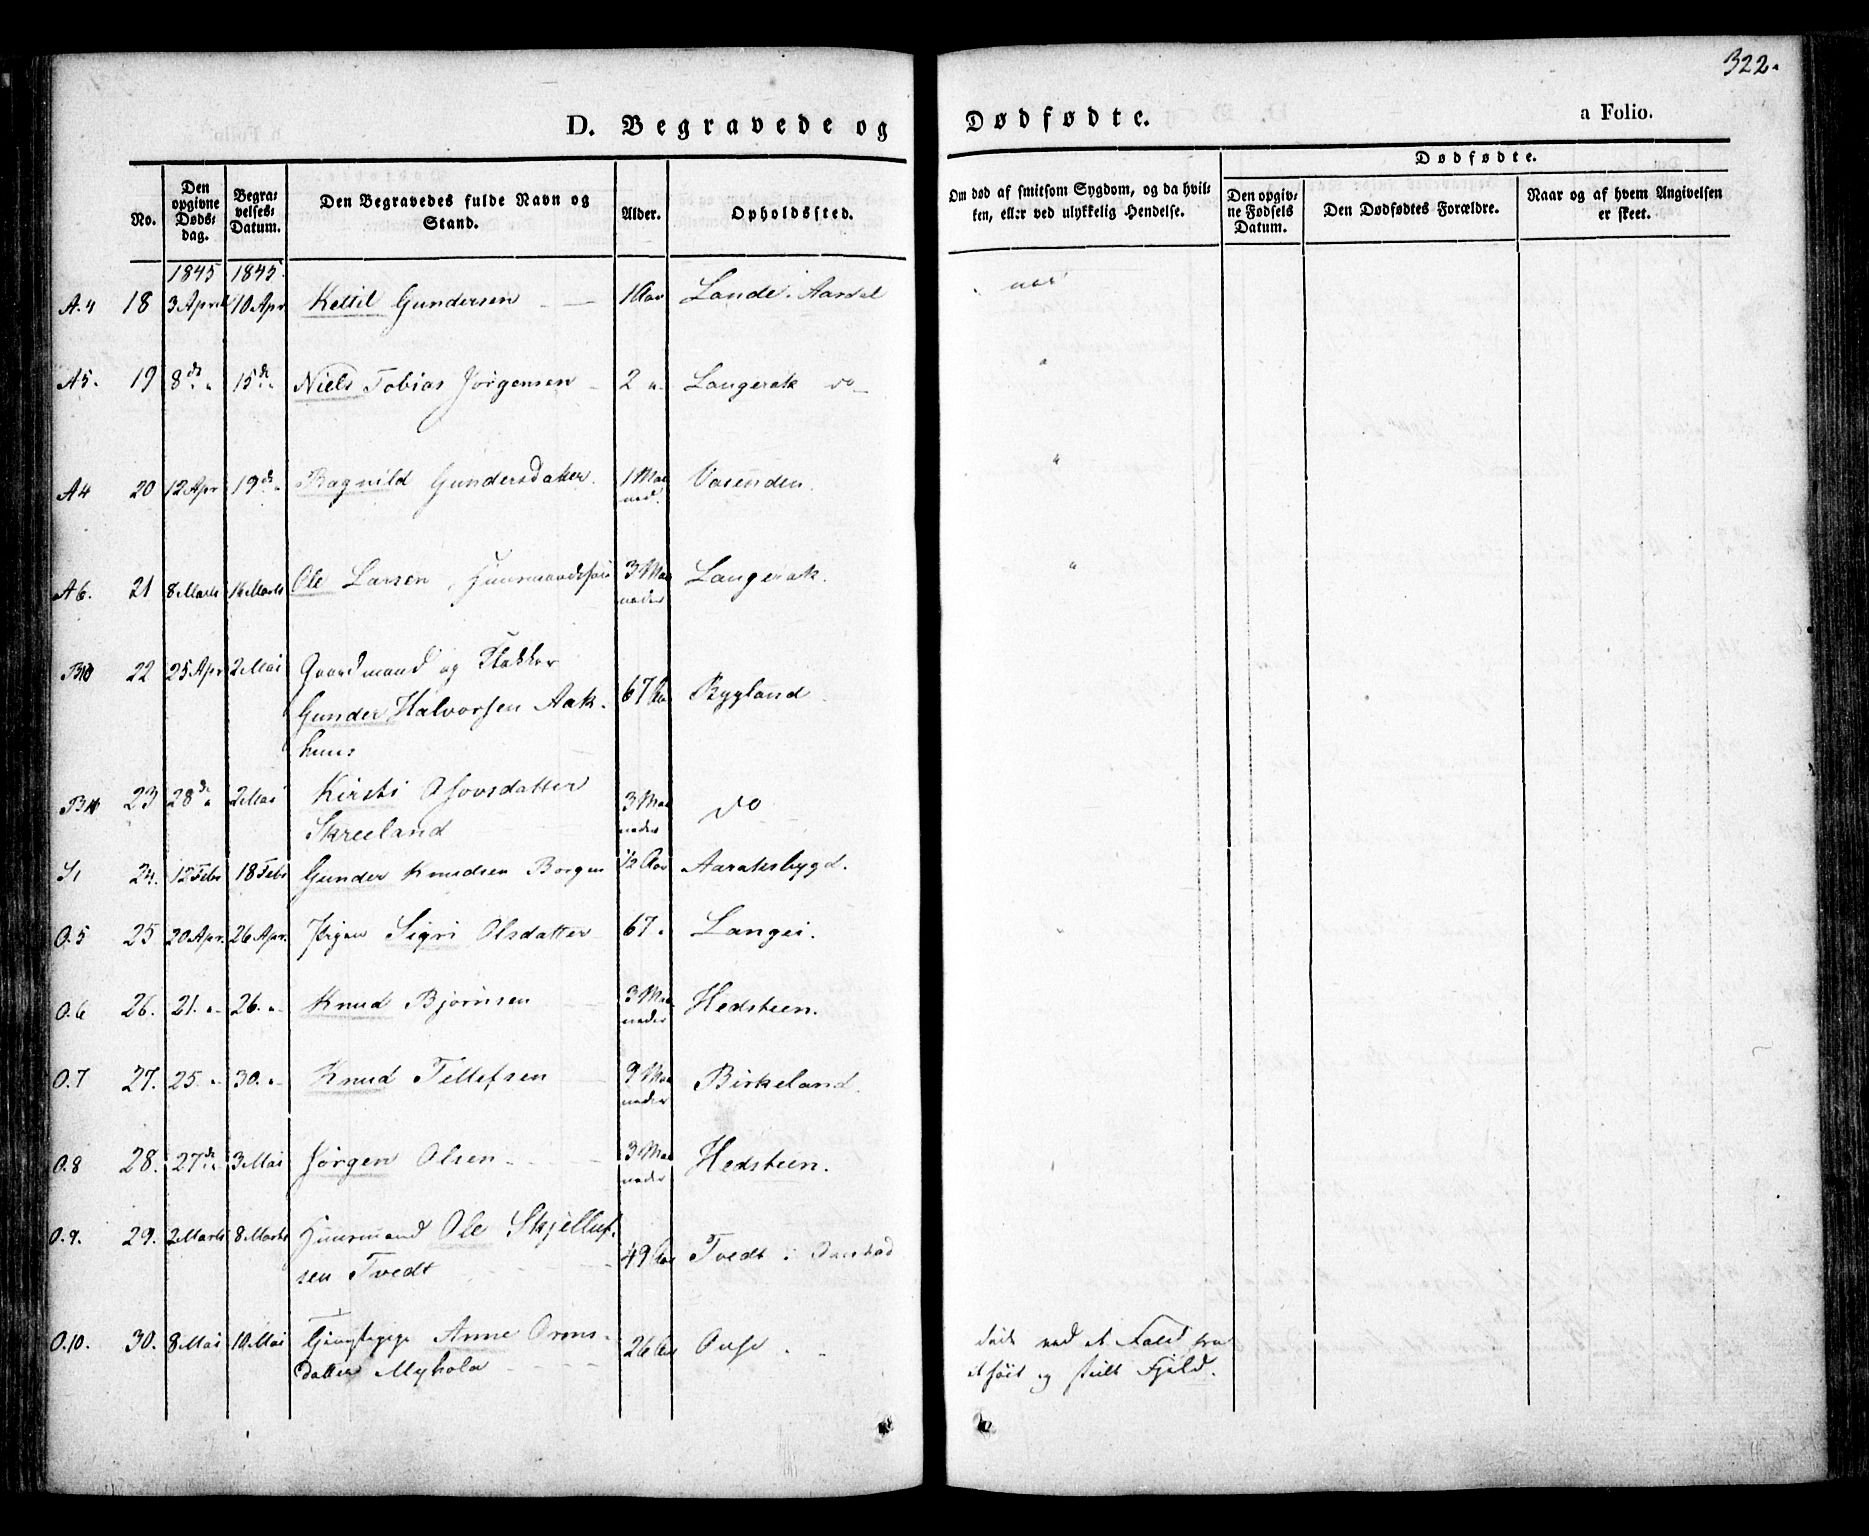 322.
D. Begravede og Dødfødte. a Folio.
No.
Den opgivne Døds-dag.
Begra-velses-Datum.
Den Begravedes fulde Navn og Stand.
Alder.
Opholdssted.
Om død af smitsom Sygdom, og da hvil-ken, eller ved ulykkelig Hendelse.
Dødfødte.
Den opgiv-ne Fødsels Datum.
Den Dødfødtes Forældre.
Naar og af hvem Angivelsen er skeet.
1845 1845
A.4 18 3 April 10 Apr Kettil Gundersen 1 Aar Lande i Aardal
A5. 19 8de " 15de " Niels Tobias Jørgensen 2 " Langerak do "
A4 20 12 Apr 19de " Ragnild Gundersdatter. 1 Maa Vasenden. "
ned.
A6. 21 8 Marts 14 Marts Ole Larsen, Huusmandssøn 3 Maa Langerak. "
neder
B10 22 25 Apr 2 Mai Gaardmand og
Gunder Halvorsen Aak- 67 Aar Bygland
huus
B11 23 28de " 2 Mai Kirsti Osovsdatter 3 Maa do
Skreeland neder
S1 24. 12 Febr 18 Febr Gunder Knudsen Borgen 1/2 Aar Aaraksbygd.
O.5 25 20 Apr. 26 Apr. Pigen Sigri Olsdatter 67. Langei.
O.6 26. 21. " 26. " Knud Bjørnsen 3 Maa Hedsteen.
neder
O.7 27. 25. " 30. " Knud Tellefsen 9 Maa Birkeland.
neder
O.8 28. 27de " 3 Mai Jørgen Olsen 3 Maa Hedsteen.
neder
O.9. 29. 2 Marts 8 Marts Huusmand Ole Skjelluf- 49 Aar Tvedt i
sen Tvedt
O.10. 30. 8 Mai 10 Mai Anne Orms- 26 Aar døde ved et Fald fra
datter Myhola et høit og steilt Fjeld.